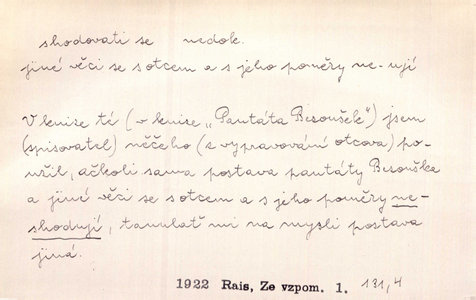 shodovati se nedok.
jiné věci se s otcem a s jeho poměry ne-ují
V knise té (v knise „Pantáta Bezoušek") jsem
(spisovatel) něčeho (z vypravování otcova) po-
užil, ačkoli sama postava pantáty Bezouška
a jiné věci se s otcem a s jeho poměry ne-
shodují, tanulať mi na mysli postava
jiná.
1922 Rais, Ze vzpom. 1. 131,4